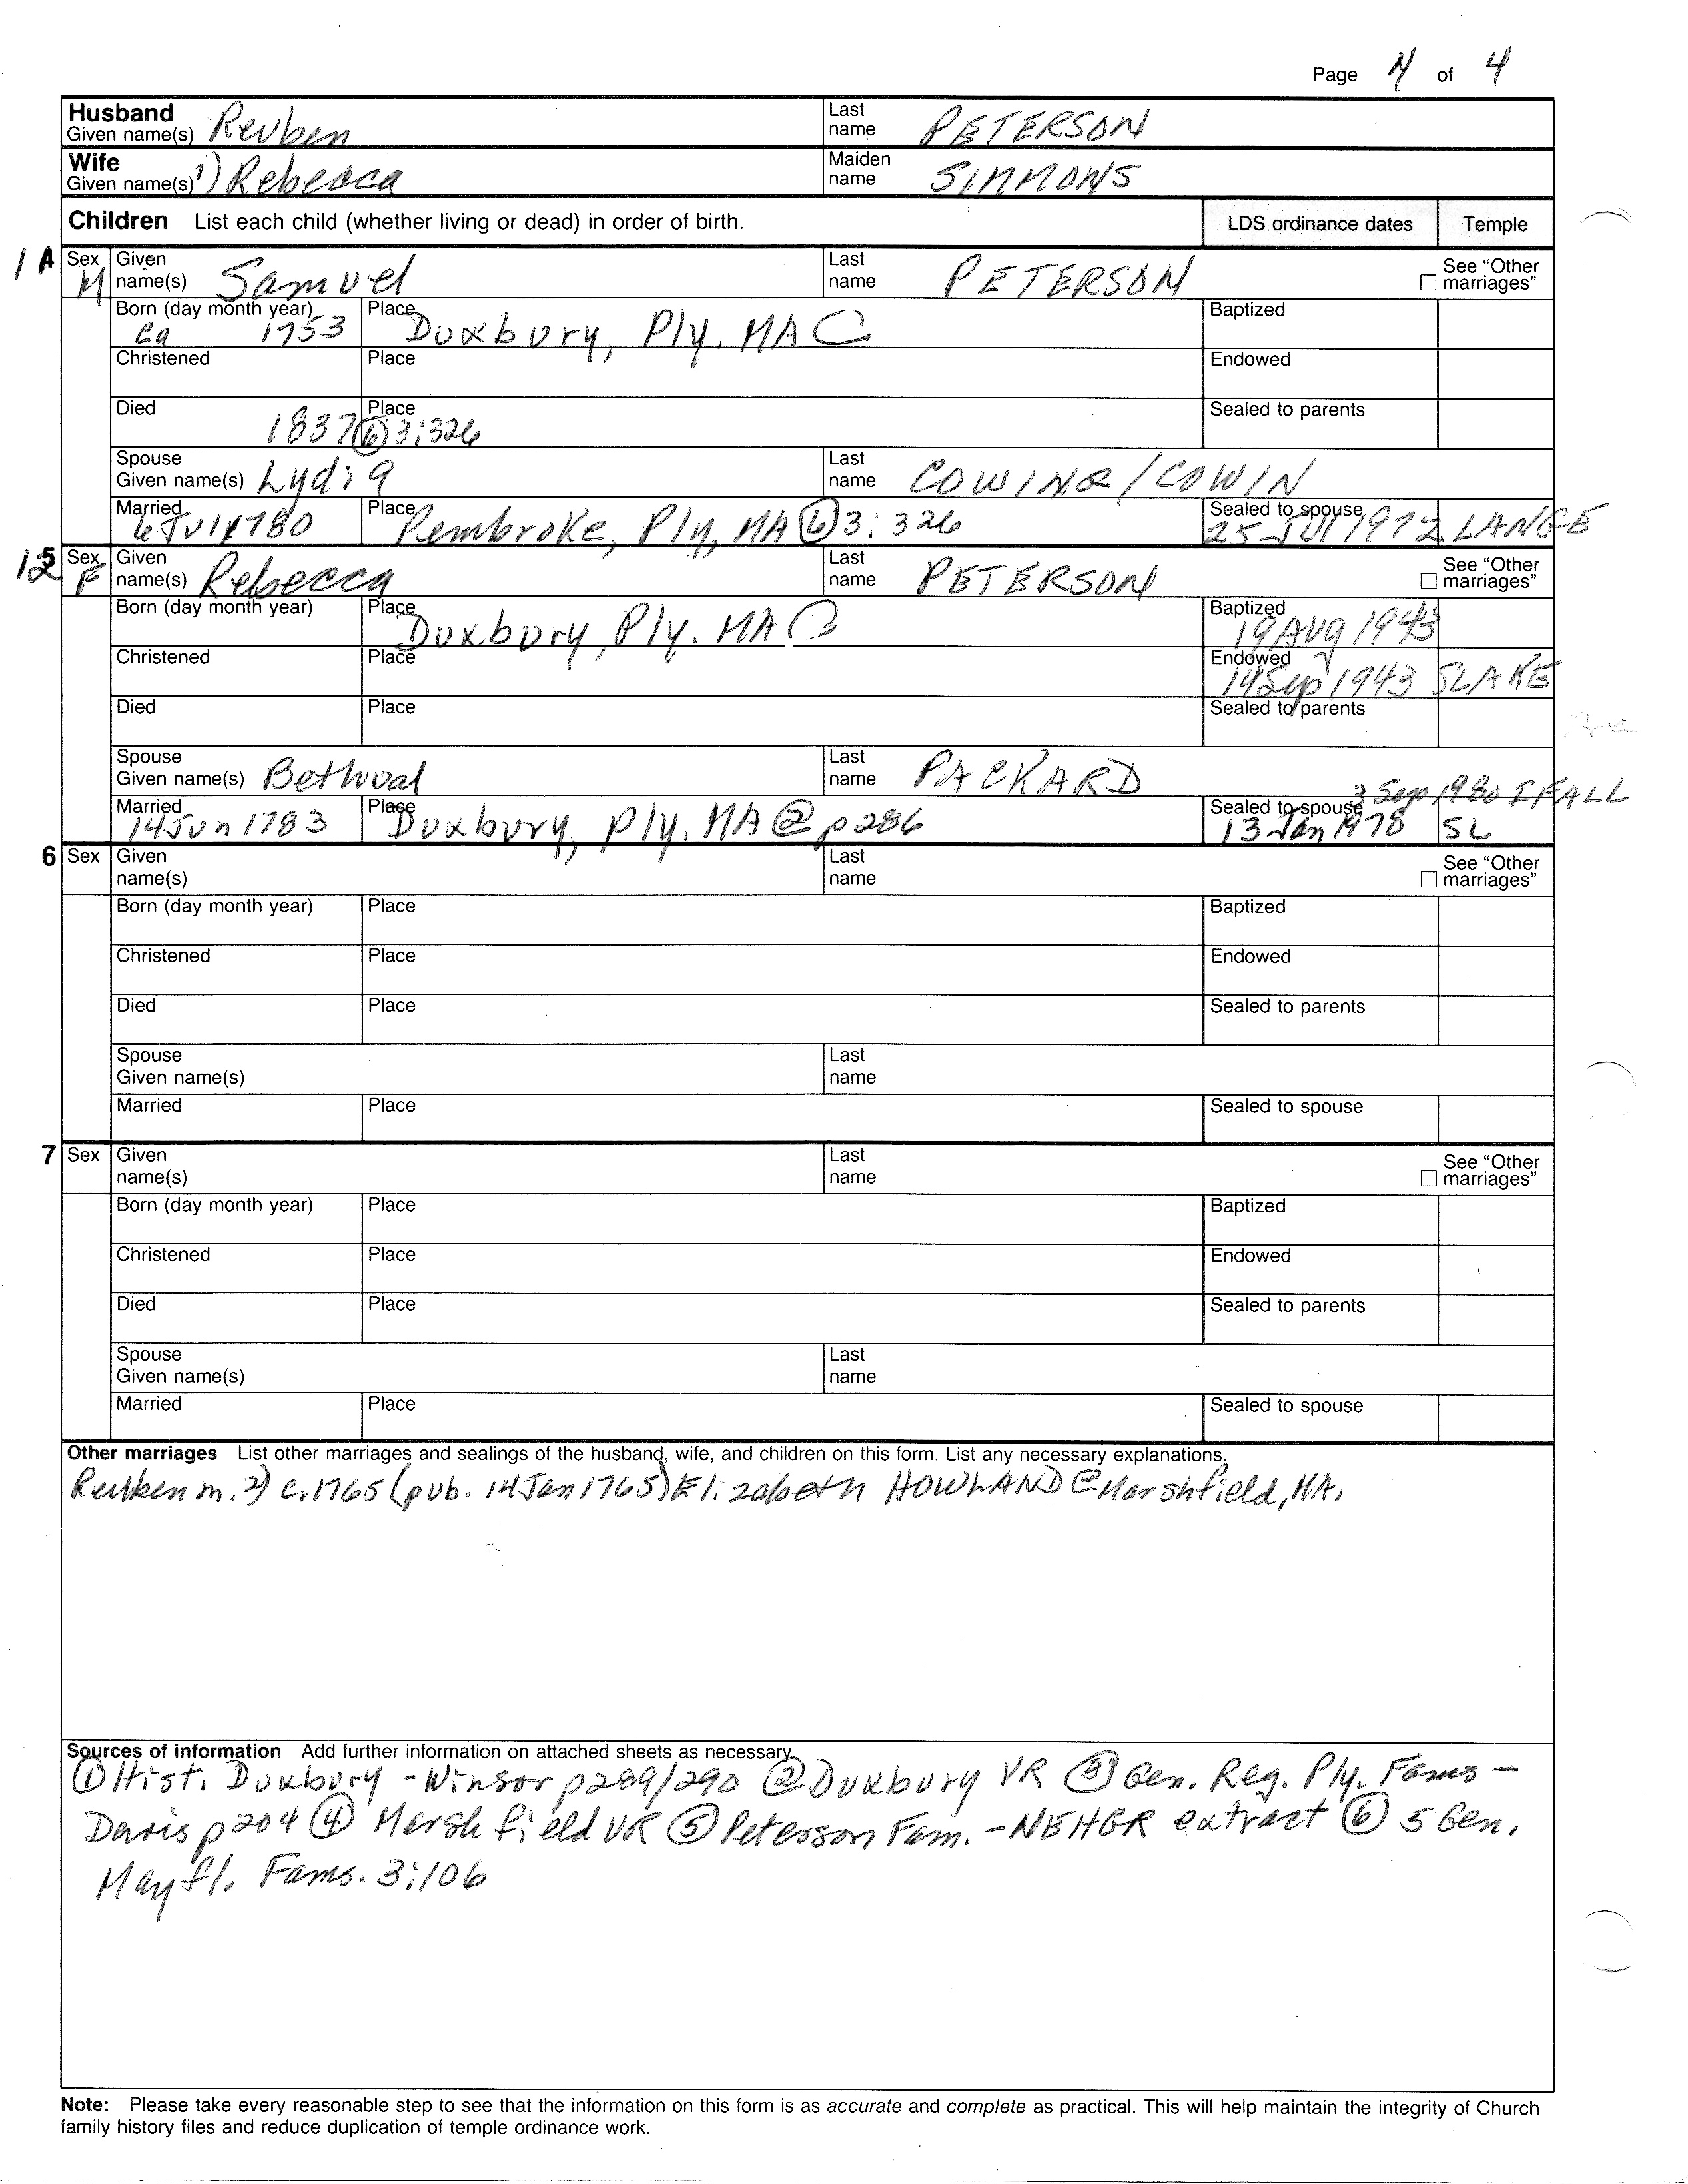 Page 4 of 4
Husband Given name(s) Reuben Last name PETERSON
Wife Given name(s) 1) Rebecca Maiden name SIMMONS
Children List each child (whether living or dead) in order of birth. LDS ordinance dates Temple
Sex M Given name(s) Samuel Last name PETERSON See "Other marriages"
Born (day month year) ca 1753 Place Duxbury, Ply. MA Baptized
Christened Place Endowed
Died 1837 Place ⑥ 3:326 Sealed to parents
Spouse Given name(s) Lydia Last name COWING/COWIN
Married 6 Jul 1780 Place Pembroke, Ply, MA ⑥ 3:326 Sealed to spouse 25 JUl 1972 LANGE
12 Sex F Given name(s) Rebecca Last name PETERSON See "Other marriages"
Born (day month year) Place Duxbury, Ply. MA Baptized 19 AUG 1943
Christened Place Endowed 14 Sep 1943 SLAKE
Died Place Sealed to parents
Spouse Given name(s) Bethual Last name PACKARD
3 Sep 1980 IFALL
Married 14 Jun 1783 Place Duxbury, Ply. MA ② p286 Sealed to spouse 13 Jan 1978 SL
6 Sex Given name(s) Last name See "Other marriages"
Born (day month year) Place Baptized
Christened Place Endowed
Died Place Sealed to parents
Spouse Given name(s) Last name
Married Place Sealed to spouse
7 Sex Given name(s) Last name See "Other marriages"
Born (day month year) Place Baptized
Christened Place Endowed
Died Place Sealed to parents
Spouse Given name(s) Last name
Married Place Sealed to spouse
Other marriages List other marriages and sealings of the husband, wife, and children on this form. List any necessary explanations.
Reuben m. 2) c.1765 (pub. 14 Jan 1765) Elizabeth HOWLAND @ Marshfield, MA.
Sources of information Add further information on attached sheets as necessary.
① Hist. Duxbury - Winsor p289/290 ② Duxbury VR ③ Gen. Reg. Ply. Fams -
Davis p204 ④ Marshfield VR ⑤ Peterson Fam. - NEHGR extract ⑥ 5 Gen.
Mayfl. Fams. 3:106
Note: Please take every reasonable step to see that the information on this form is as accurate and complete as practical. This will help maintain the integrity of Church
family history files and reduce duplication of temple ordinance work.